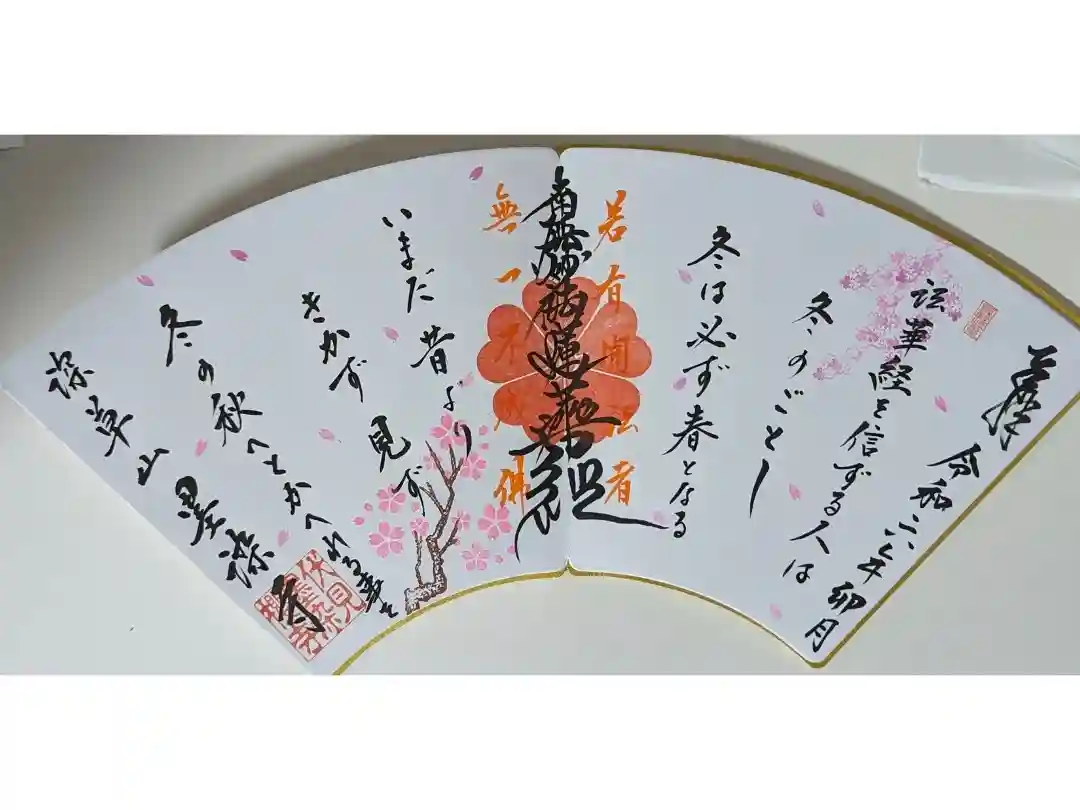 奉拝
令和六年 卯月
法華経を信ずる人は
冬のごとし
冬は必ず春となる
若有聞法者
南無妙法蓮華経
無一不成佛
いまだ昔より
きかず 見ず
冬の秋へとかへれる事を
深草山 墨染寺